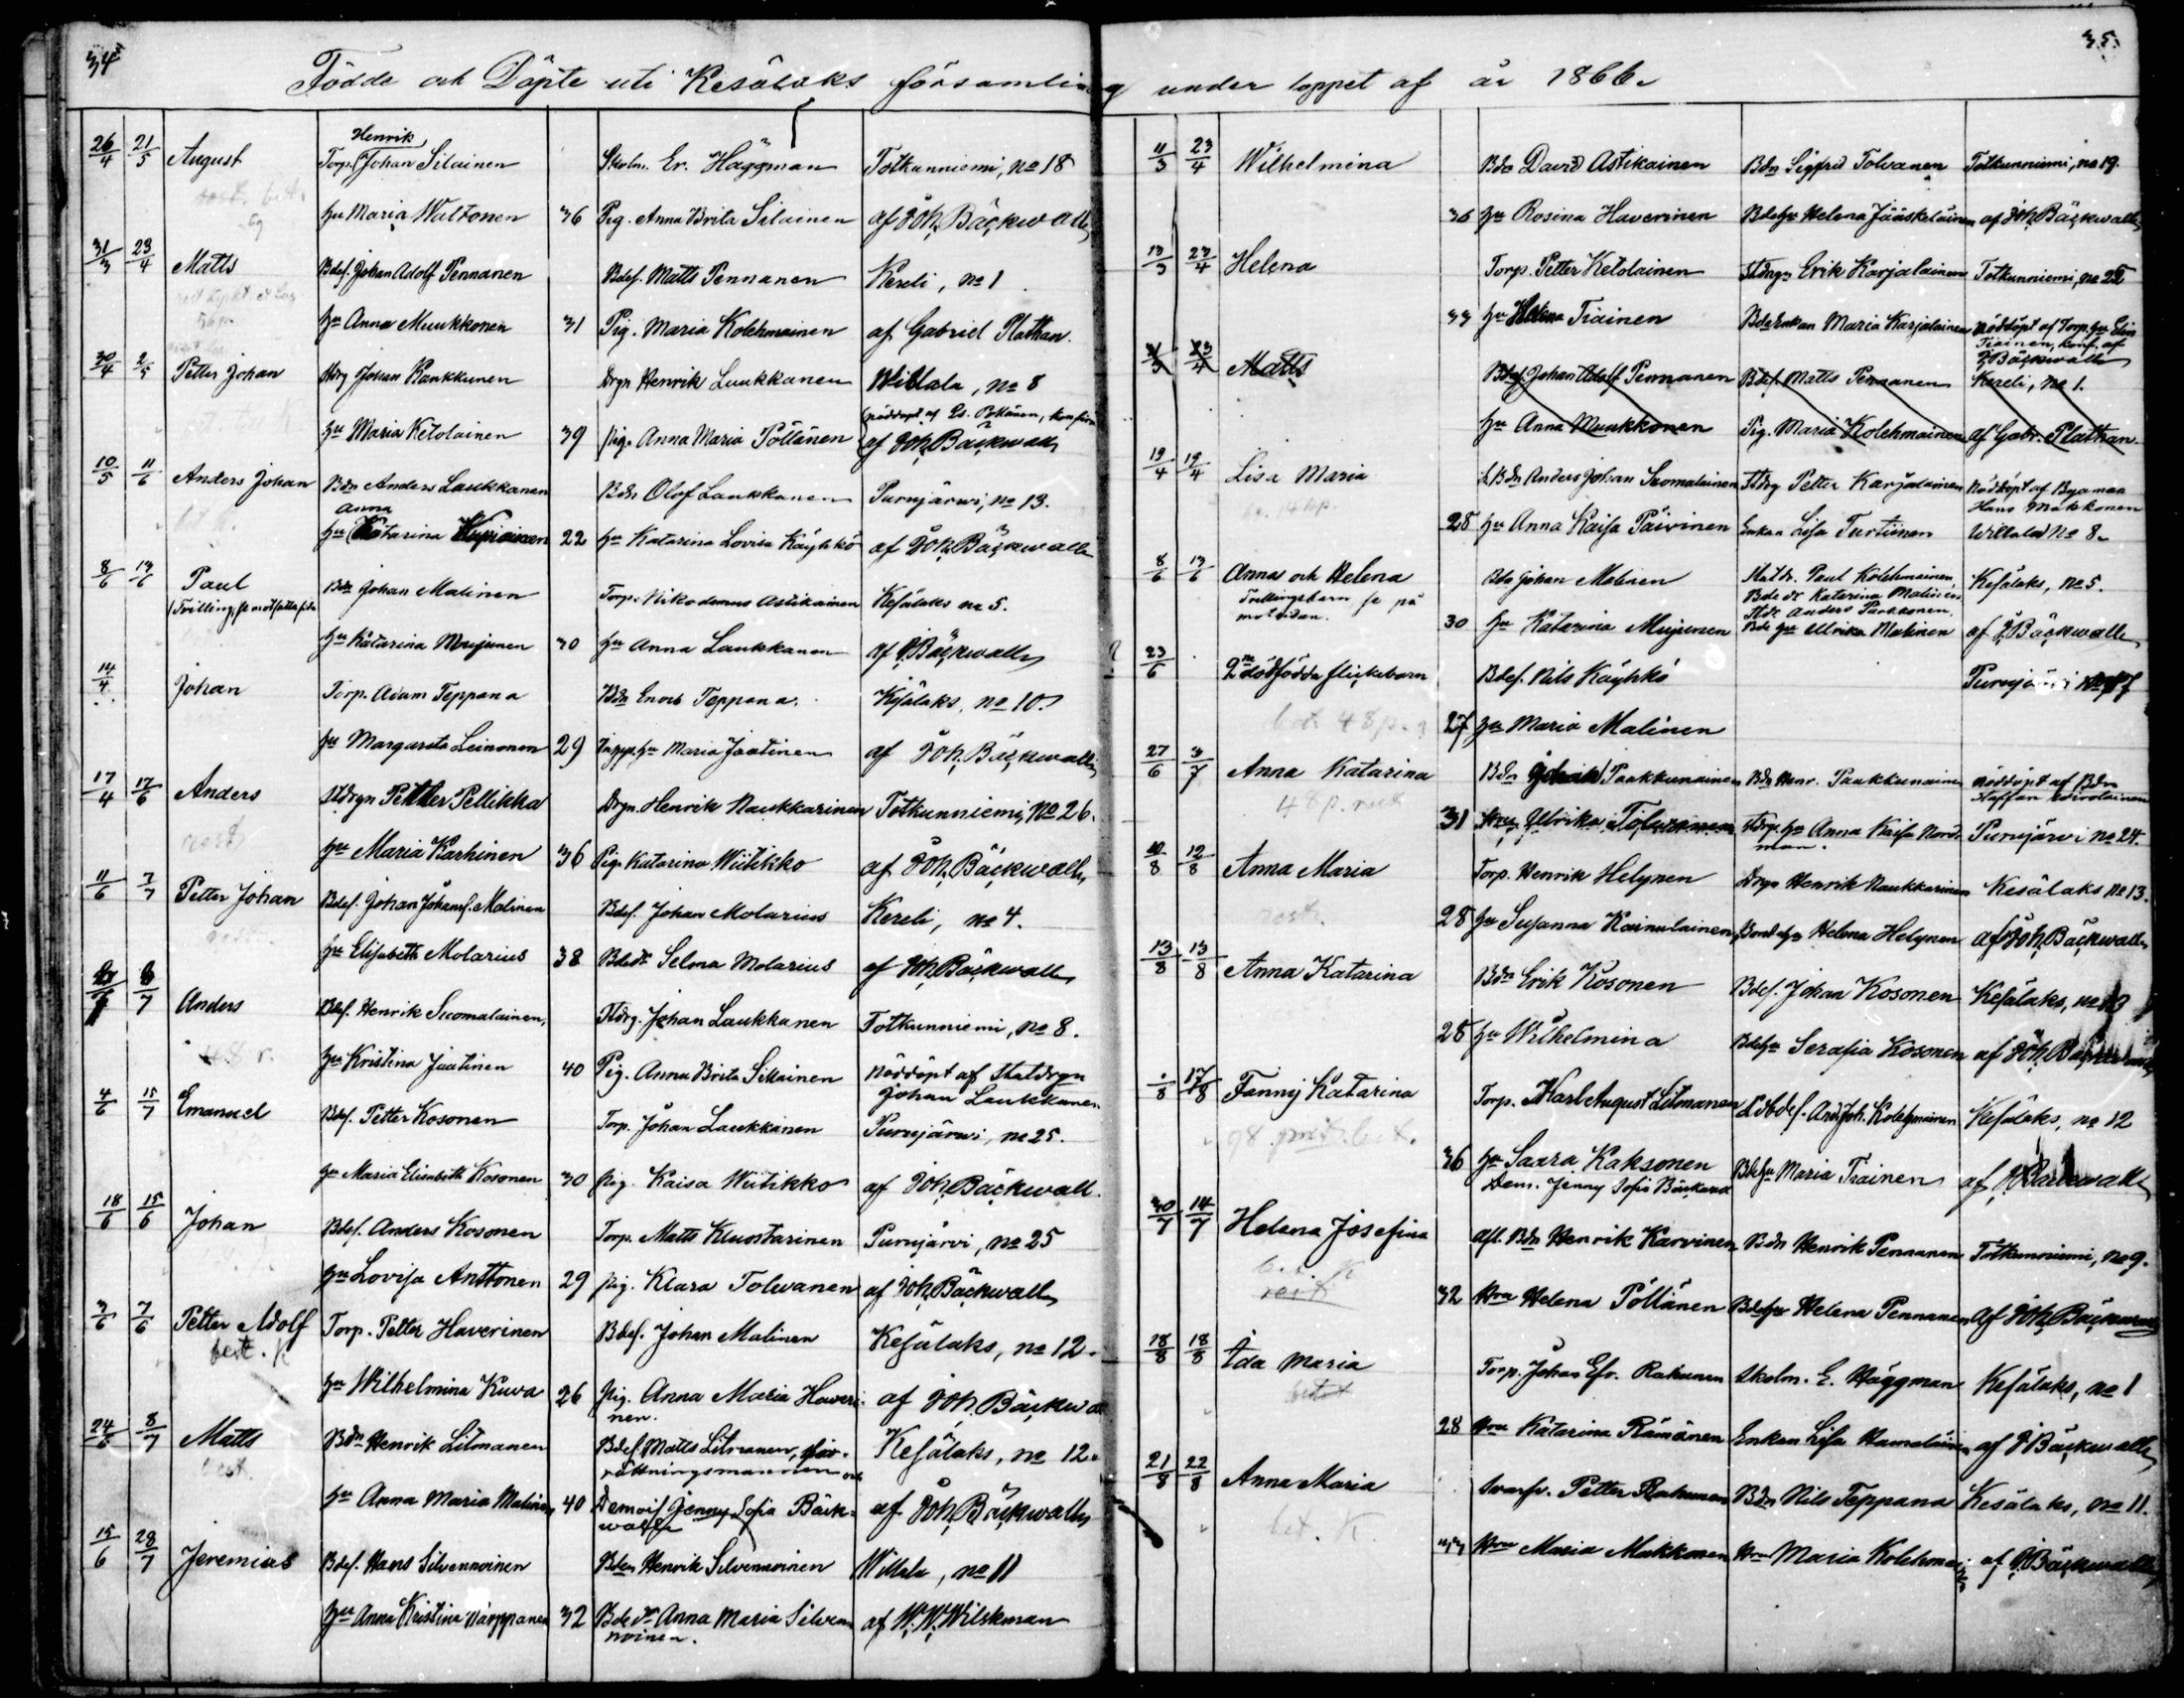 34
Födde och Döpte uti Kesälaks församling under loppet af år 1866.
26/4 21/5 August Torp. Henrik Johan Silainen Skolm. Er. Häggman Totkunniemi, No 18
hu Maria Waltonen 36 Pig. Anna Brita Silainen af Joh. Bäckwall
31/3 23/4 Matts Bdes. Johan Adolf Pennanen Bdes. Matts Pennanen Kereli, no 1
hu Anna Muukkonen 31 Pig. Maria Kolehmainen af Gabriel Plathan.
30/4 2/5 Petter Johan Johan Pankkunen Drgn Henrik Luukkanen Willala, no 8
hu Maria Ketolainen 39 pig. Anna Maria Pöllänen af Joh. Bäckwall
10/5 11/6 Anders Johan Bdn Anders Laukkanen Bdn Olof Laukkanen Purujärwi, no 13.
hu Anna Katarina 22 hu Katarina Lovisa Käyhkö af Joh. Bäckwall
8/6 13/6 Paul Bdn Johan Malinen Torp. Nikodemus Astikainen Kesälaks no 5.
hu Katarina Mujunen 30 hu Anna Laukkanen af J. Bäckwall
14/4 Johan Torp. Adam Teppana Bdn Enok Teppana. Kesälaks, no 10.
hu Margareta Leinonen 29 hu Maria Jaatinen af Joh. Bäckwall
17/4 17/6 Anders Stdrgn Petter Pellikka Drgn. Henrik Naukkarinen Totkunniemi, No 26.
rest
hu Maria Karhinen 36 Pig. Katarina Wiitikko af Joh. Bäckwall
11/6 7/7 Petter Johan Bdes. Johan Johans. Malinen Bdes. Johan Molarius Kereli, no 4.
hu Elisabeth Molarius 38 Bdedr Selma Molarius af Joh Bäckwall
Anders Bdes. Henrik Suomalainen, Stdrg. Johan Laukkanen Totkunniemi, No 8.
hu Kristina Jaatinen 40 Pig. Anna Brita Sillainen nöddöpt af Statdrgn
Johan Laukkanen
4/6 15/7 Emanuel Bdes. Petter Kosonen Torp. Johan Laukkanen Purujärwi, no 25.
hu Maria Elisabeth Kosonen 30 pig. Kaisa Wiitikko af Joh Bäckwall.
18/6 15/6 Johan Bdes. Anders Kosonen Torp. Matts Kluostarinen Purujärvi, no 25
hu Lovisa Anttonen 29 pig. Klara Tolwanen af Joh Bäckwall
3/6 7/6 Petter Adolf Torp. Petter Haverinen Bdes. Johan Malinen Kesälaks, no 12.
best. K
hu Wilhelmina Kuva 26 Pig. Anna Maria Haveri-
nen. af Joh. Bäckwall
24/6 8/7 Matts Bdn Henrik Litmanen Bdes. Matts Litmanen,
rättningsmannen och Kesälaks, no 12.
best.
hu Anna Maria Malinen 40 Demois. Jenny Sofia Bäck-
wall af Joh Bäckwall
15/6 28/7 Jeremias Bdes. Hans Silvennoinen Bden Henrik Silvennoinen Willala, no 11
hu Anna Kristina Wärppanen 32 Bdedr Anna Maria Silven-
noinen. af W. W. Wilskman
35.
11/3 23/4 Wilhelmina Bdn David Astikainen Bdn Sigfrid Tolvanen Totkunniemi, no 19.
36 hu Rosina Haverinen Bdehu Helena Jääskeläinen af Joh. Bäckwall
13/3 23/4 Helena Torp. Petter Ketolainen Stdrgn Erik Karjalainen Totkunniemi, no 25
33 hu Helena Tiainen Bdeenkan Maria Karjalainen nöddöpt af Torp. hu Elin
Tiainen, konf. af
J Bäckwall
31/3 23/4 Matts Bdes. Johan Adolf Pennanen Bdes. Matts Pennanen Kereli, no 1.
hu Anna Muukkonen Pig. Maria Kolehmainen af Gabr. Plathan
19/4 19/4 Lisa Maria Bdn Anders Johan Suomalainen Stdrg Petter Karjalainen nöddöpt af Byaman
Hans Makkonen
28 hu Anna Kaisa Päivinen Enkan Lisa Turtiinen Willala No 8.
8/6 13/6 Anna och Helena Bdn Johan Malinen Statdr. Paul Kolehmainen, Kesälaks, no 5.
Trillingsbarn se på
motsidan.
Bdedr Katarina Malinen
Stdr Anders Parkkonen.
30 hu Katarina Mujunen Bde hu Ulrika Malinen af J. Bäckwall
23/6 2ne dödfödda flickebarn Bdes. Nils Käyhkö Purujärvi
27 hu Maria Malinen
27/6 3/7 Anna Katarina Bdn Paakkunainen Bdn Henr. Paakkunainen nöddöpt af Bdn
Staffan
31 Ulrika Tolvanen Stdrgn hu Anna Kaisa Nord-
man. Purujärvi no 24.
10/8 12/8 Anna Maria Torp. Henrik Helynen Drgn Henrik Naukkarinen Kesälaks No 13.
rest.
28 hu Susanna Kainulainen Bondehu Helena Helynen af Joh. Bäckwall
13/8 13/8 Anna Katarina Bdn Erik Kosonen Bdes. Johan Kosonen Kesälaks, no 13
28 hu Wilhelmina Bdehu Serafia Kosonen af Joh. Bäckwall
17/8 Fanny Katarina Torp. Karl August Litmanen And. Joh. Kolehmainen Kesälaks, no 12
36 hu Saara Kaksonen Bdehu Maria Tiainen af J Bäckwall
Dem. Jenny Sofia Bäckwall
30/7 14/7 Helena Josefina afl. Bdn Henrik Karvinen Bdn Henrik Pennanen Totkunniemi, no 9.
32 Hru Helena Pöllänen Bdehu Helena Pennanen af Joh. Bäckwall
18/8 18/8 Ida Maria Torp. Johan Efr. Rahunen Skolm. E. Häggman Kesälaks, no 1
28 Hru Katarina Rämänen Enkan Lisa Hamalainen af J Bäckwall
21/8 22/8 Anna Maria Svarfv. Petter Rahunen Bdn Nils Teppana Kesälaks, no 11.
bet. K
Hru Maria Makkonen Hru Maria Kolehmainen af J Bäckwall